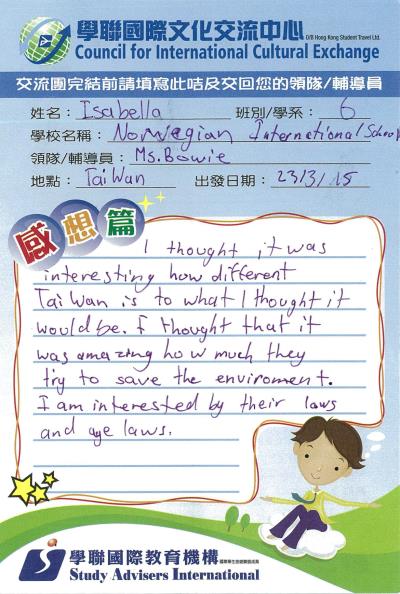 學聯國際文化交流中心 O/B Hong Kong Student Travel Ltd.
Council for International Cultural Exchange
交流團完結前請填寫此咭及交回您的領隊/輔導員
姓名: Isabella 班別/學系: 6
學校名稱: Norwegian International School
領隊/輔導員: Ms.Bowie
地點: TaiWan 出發日期: 23/3/15
感想篇
I thought it was
interesting how different
TaiWan is to what I thought it
would be. I thought that it
was amazing how much they
try to save the enviroment.
I am interested by their laws
and age laws.
學聯國際教育機構
Study Advisers International